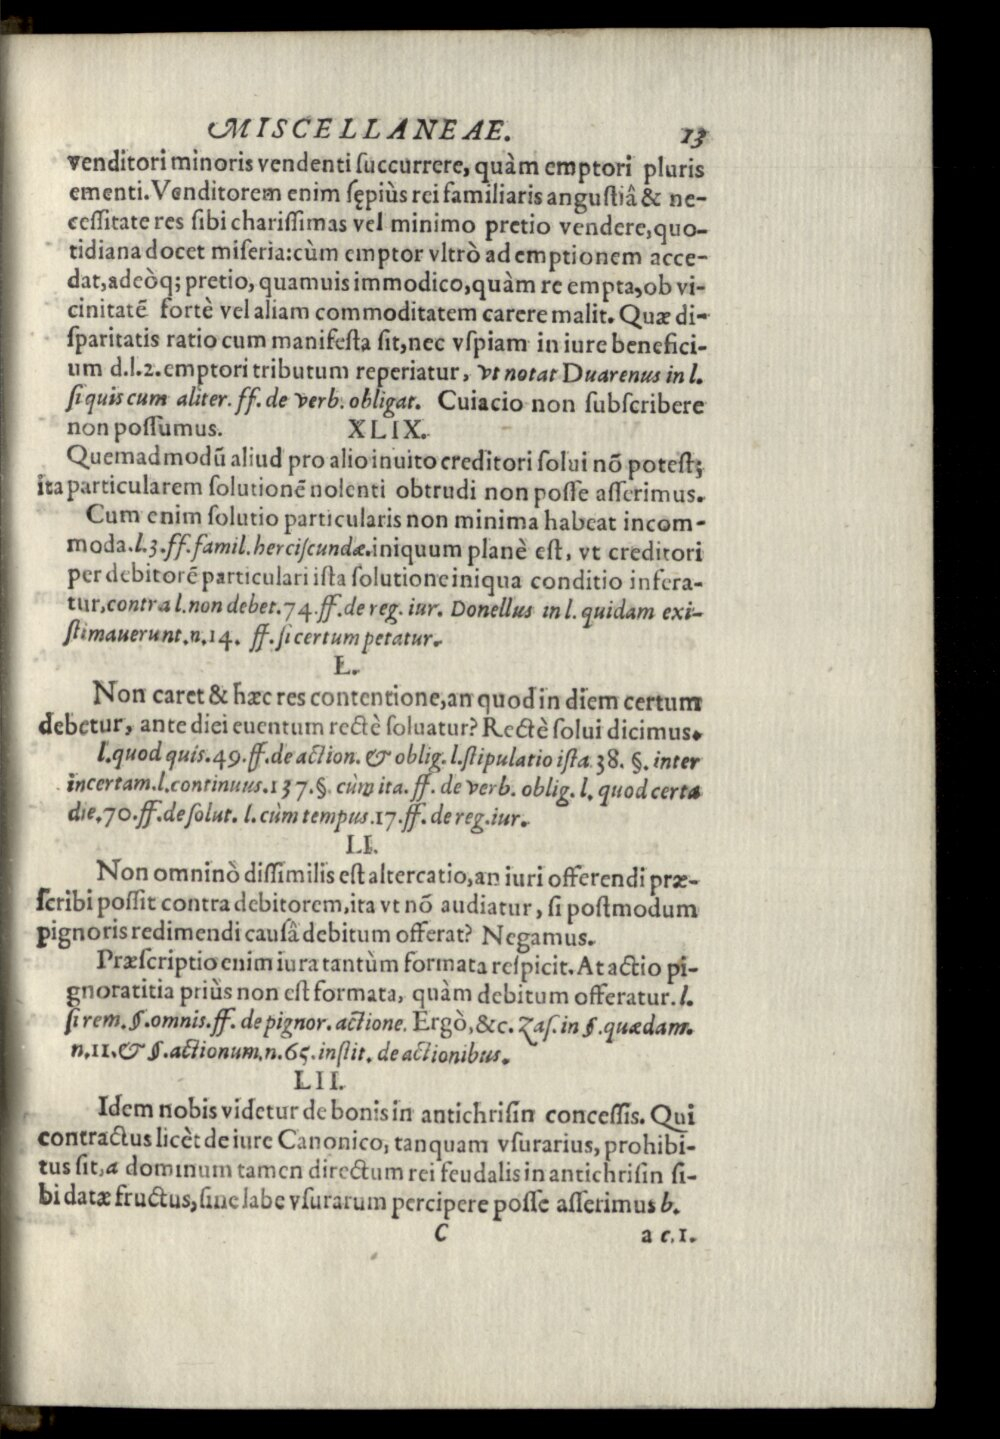 MISCELLANEAE. 13
venditori minoris vendenti ſuccurrere, quàm emptori pluris
ementi. Venditorem enim ſępiùs rei familiaris anguſtiâ & ne-
ceſſitate res ſibi chariſſimas vel minimo pretio vendere, quo-
tidiana docet miſeria: cùm emptor vltrò ad emptionem acce-
dat, adeòq; pretio, quamuis immodico, quàm re empta, ob vi-
cinitatē fortè vel aliam commoditatem carere malit. Quæ di-
ſparitatis ratio cum manifeſta ſit, nec vſpiam in iure benefici-
um d.l.2. emptori tributum reperiatur, vt notat Duarenus in l.
ſi quis cum aliter. ff. de verb. obligat. Cuiacio non ſubſcribere
non poſſumus. XLIX.
Quemadmodū aliud pro alio inuito creditori ſolui nō poteſt;
ita particularem ſolutionē nolenti obtrudi non poſſe aſſerimus.
Cum enim ſolutio particularis non minima habeat incom-
moda. l.3. ff. famil. herciſcundæ. iniquum planè eſt, vt creditori
per debitorē particulari iſta ſolutione iniqua conditio infera-
tur, contra l. non debet. 74. ff. de reg. iur. Donellus in l. quidam exi-
ſtimauerunt. n. 14. ff. ſi certum petatur.
L.
Non caret & hæc res contentione, an quod in diem certum
debetur, ante diei euentum rectè ſoluatur? Rectè ſolui dicimus.
l. quod quis. 49. ff. de action. & oblig. l. ſtipulatio iſta. 38. §. inter
incertam. l. continuus. 137. §. cùm ita. ff. de verb. oblig. l. quod certa
die. 70. ff. de ſolut. l. cùm tempus. 17. ff. de reg. iur.
LI.
Non omninò diſſimilis eſt altercatio, an iuri offerendi præ-
ſcribi poſſit contra debitorem, ita vt nō audiatur, ſi poſtmodum
pignoris redimendi cauſâ debitum offerat? Negamus.
Præſcriptio enim iura tantùm formata reſpicit. At actio pi-
gnoratitia priùs non eſt formata, quàm debitum offeratur. l.
ſi rem. §. omnis. ff. de pignor. actione. Ergò, &c. Zaſ. in §. quædam.
n. 11. & §. actionum. n. 65. inſtit. de actionibus.
LII.
Idem nobis videtur de bonis in antichriſin conceſſis. Qui
contractus licèt de iure Canonico, tanquam vſurarius, prohibi-
tus ſit, a dominum tamen directum rei feudalis in antichriſin ſi-
bi datæ fructus, ſine labe vſurarum percipere poſſe aſſerimus b.
C a c. 1.